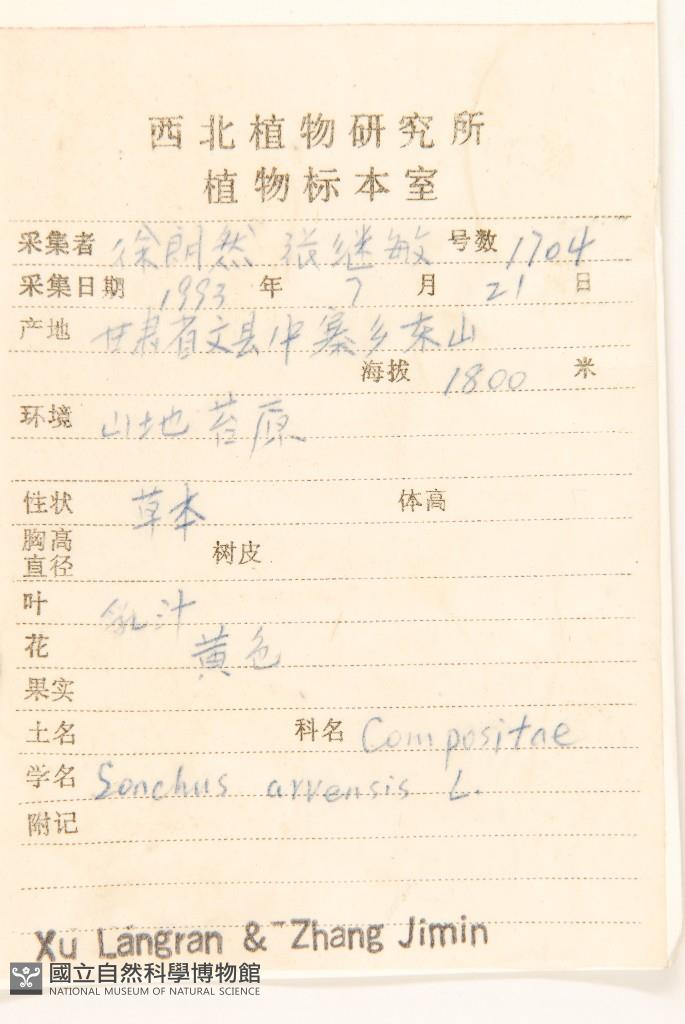 西北植物研究所
植物标本室
采集者 徐朗然 张继敏 号数 1704
采集日期 1993 年 7 月 21 日
产地 甘肃省文县中寨乡东山
海拔 1800 米
环境 山地苔原
性状 草本 体高
胸高直径 树皮
叶 乳汁
花 黄色
果实
土名 科名 Compositae
学名 Sonchus arvensis L.
附记
Xu Langran & Zhang Jimin
國立自然科學博物館
NATIONAL MUSEUM OF NATURAL SCIENCE